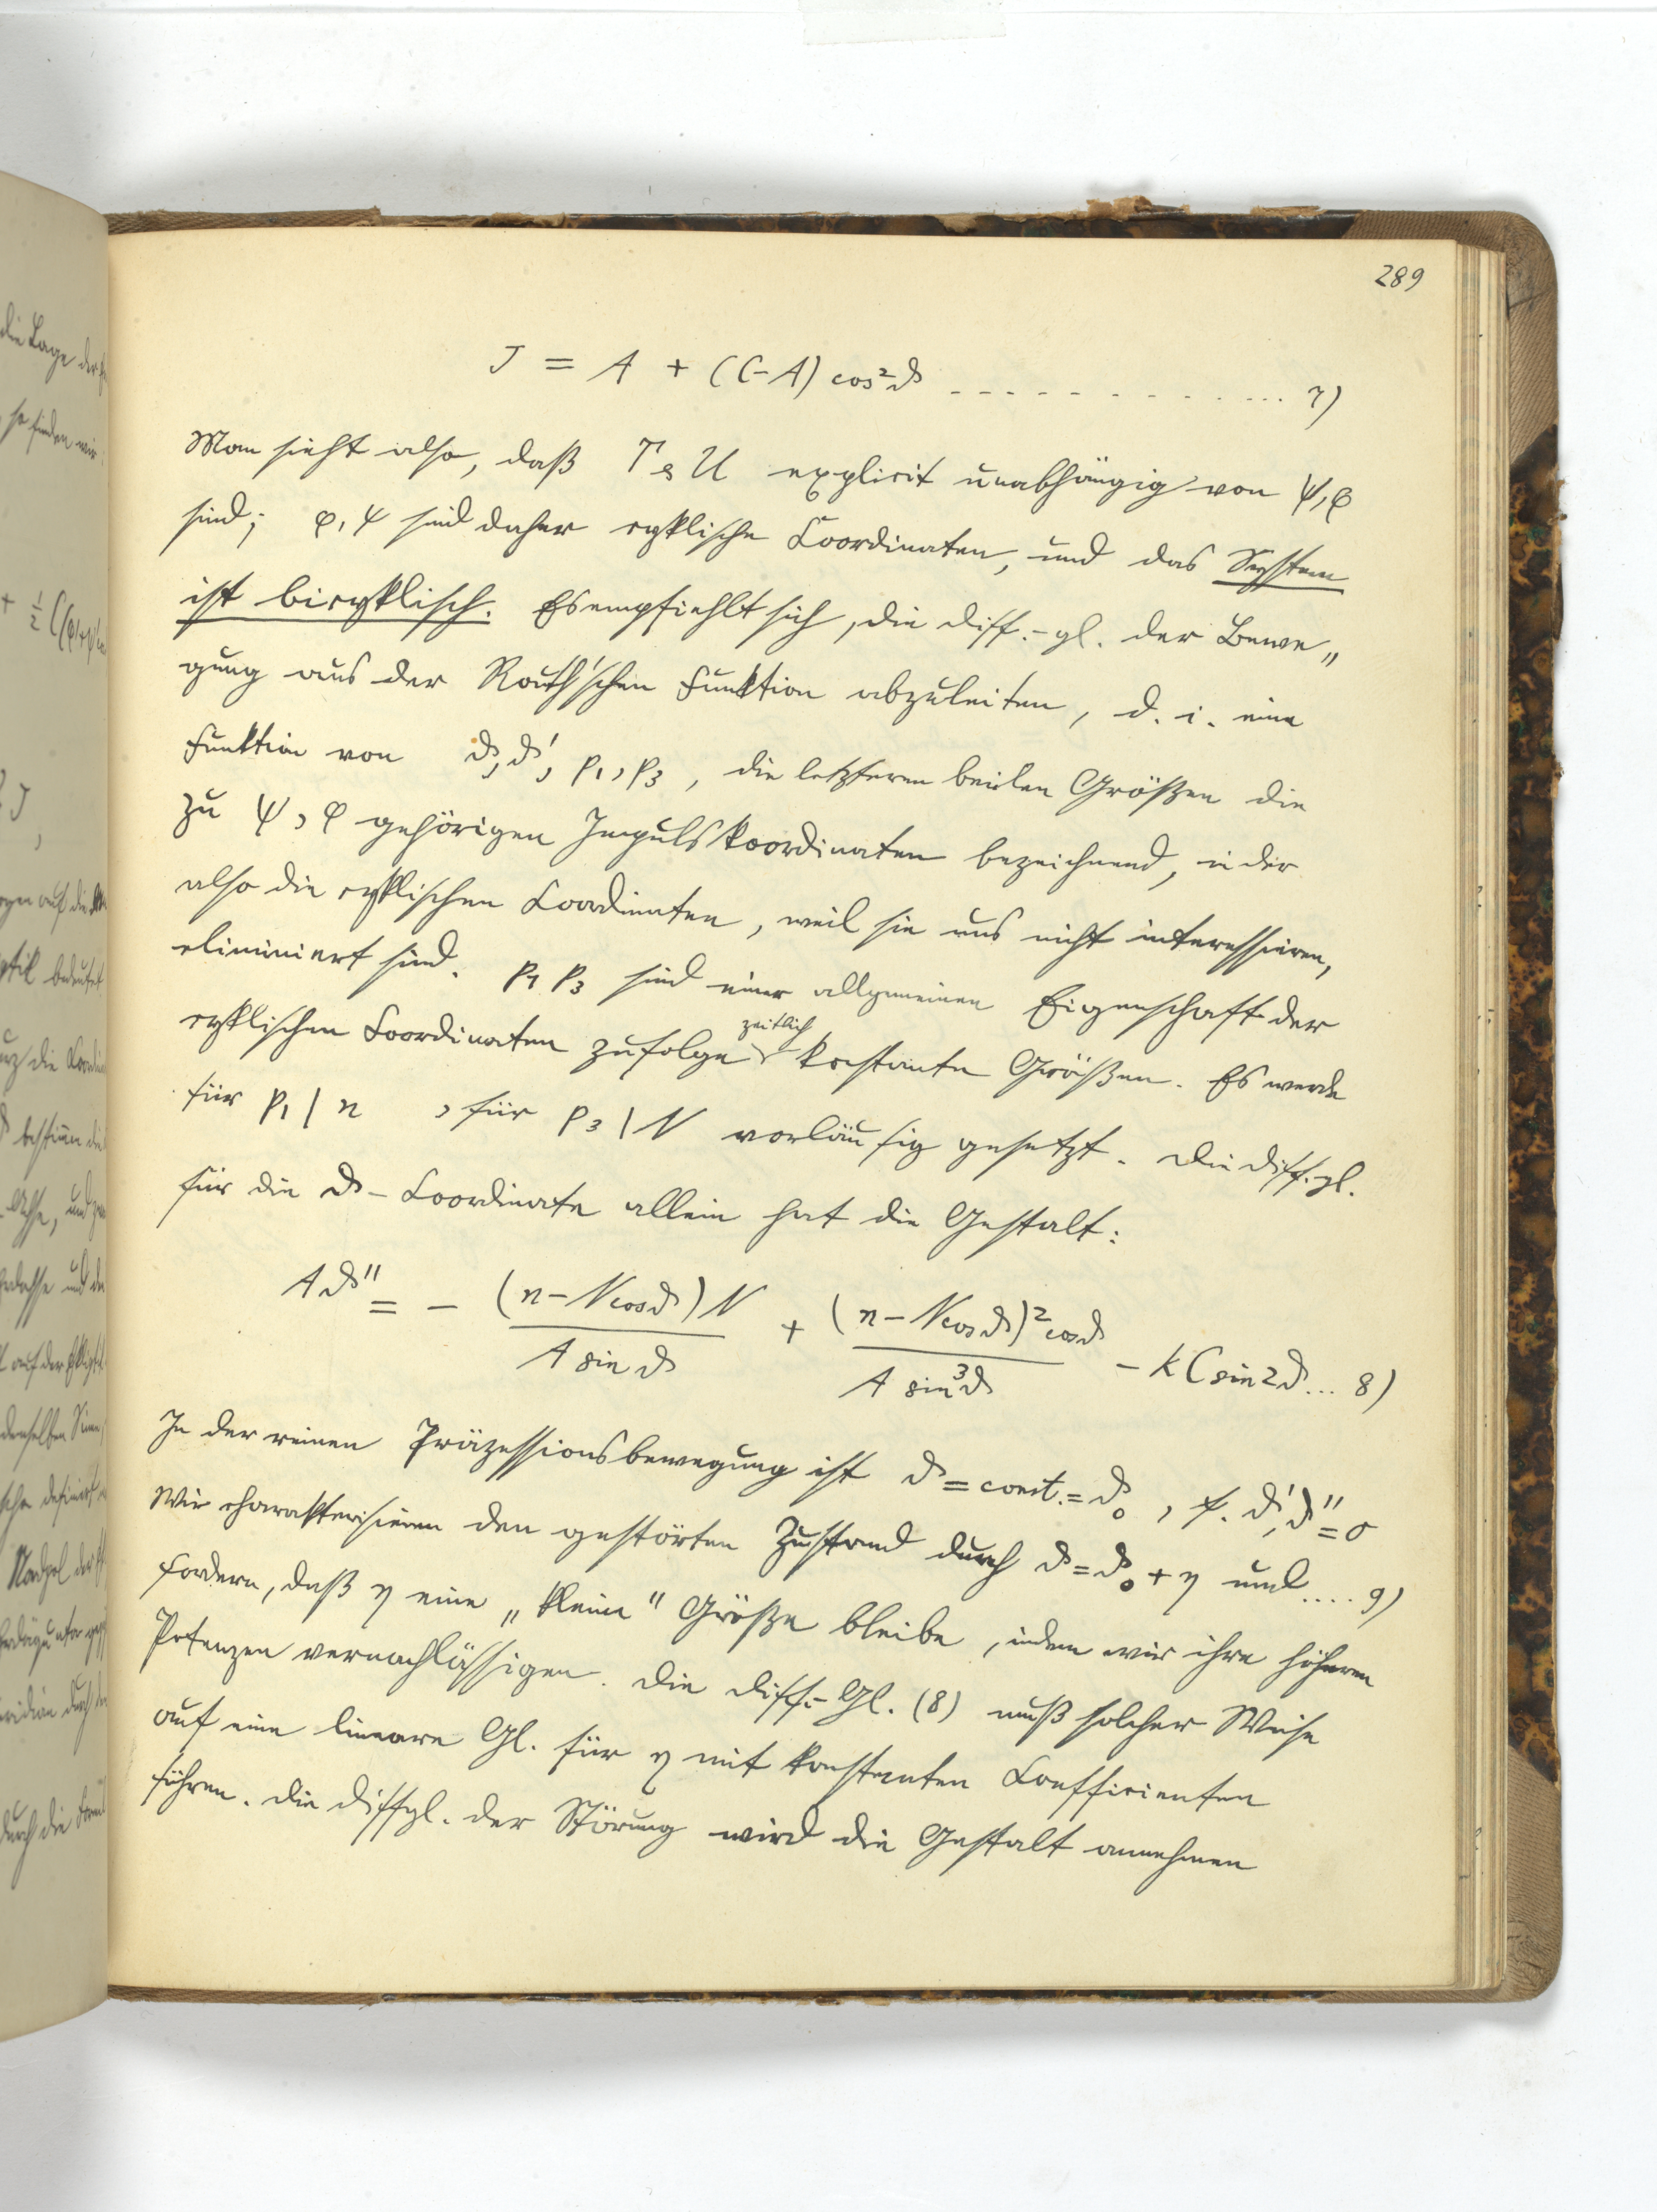 289
J = A + (C-A) cos²ϑ - - - - - - - - - - - ... 7)
Man sieht also, daß T & U explicit unabhängig von ψ, φ
sind; φ, ψ sind daher cyklische Coordinaten, und das System
ist bicyklisch. Es empfiehlt sich, die Diff.-gl. der Bewe„
gung aus der Routh'schen Funktion abzuleiten, d. i. eine
Funktion von ϑ, ϑ', p₁, p₃, die letzteren beiden Größen die
zu ψ, φ gehörigen Impulskoordinaten bezeichnend, in der
also die cyklischen Coordinaten, weil sie uns nicht interessieren,
eliminiert sind. p₁ p₃ sind einer allgemeinen Eigenschaft der
zeitlich
cyklischen Coordinaten zufolge konstante Größen. Es werde
für p₁ | n , für p₃ | N vorläufig gesetzt. Die Diff.gl.
für die ϑ-Coordinate allein hat die Gestalt:
Aϑ'' = - (n - N cosϑ) N / A sin ϑ + (n - N cosϑ)² cosϑ / A sin³ϑ - k C sin 2ϑ ... 8)
In der reinen Präzessionsbewegung ist ϑ = const. = ϑ₀, ϑ', ϑ'' = 0
Wir charakterisieren den gestörten Zustand durch ϑ = ϑ₀ + η und .... 9)
fordern, daß η eine „kleine" Größe bleibe, indem wir ihre höheren
Potenzen vernachlässigen. Die Diff.-Gl. (8) muß solcher Weise
auf eine lineare Gl. für η mit konstanten Coefficienten
führen. Die Diffgl. der Störung wird die Gestalt annehmen
die Lage der
so finden wir
+ ½ C(φ'+ψ'
J,
auf die
bedeutet
die
bestimmen die
und
auf der
denselben Sinn
definiert
durch
durch die